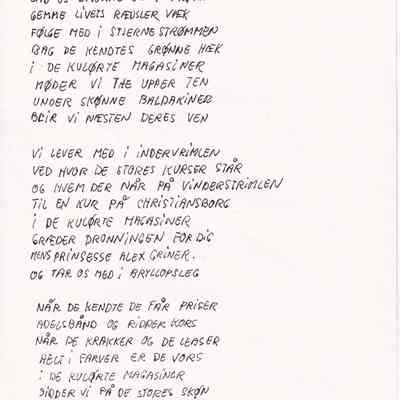 GEMME LIVETS RÆDSLER VÆK
FØLGE MED I STJERNESTRØMMEN
BAG DE KENDTES GRØNNE HÆK
I DE KULØRTE MAGASINER
MØDER VI THE UPPER TEN
UNDER SKØNNE BALDAKINER
BLIR VI NÆSTEN DERES VEN
VI LEVER MED I INDERVRIMLEN
VED HVOR DE STORES KURSER STÅR
OG HVEM DER NÅR PÅ VINDERSTRIMLEN
TIL EN KUR PÅ CHRISTIANSBORG
I DE KULØRTE MAGASINER
GRÆDER DRONNINGEN FOR DIG
MENS PRINSESSE ALEX GRINER.
OG TAR OS MED I BRYLLOPSLEG
NÅR DE KENDTE DE FÅR PRISER
ADELSBÅND OG RIDDERKORS
NÅR DE KRAKKER OG DE LEASER
HELT I FARVER ER DE VORS
I DE KULØRTE MAGASINER
SIDDER VI PÅ DE STORES SKØN